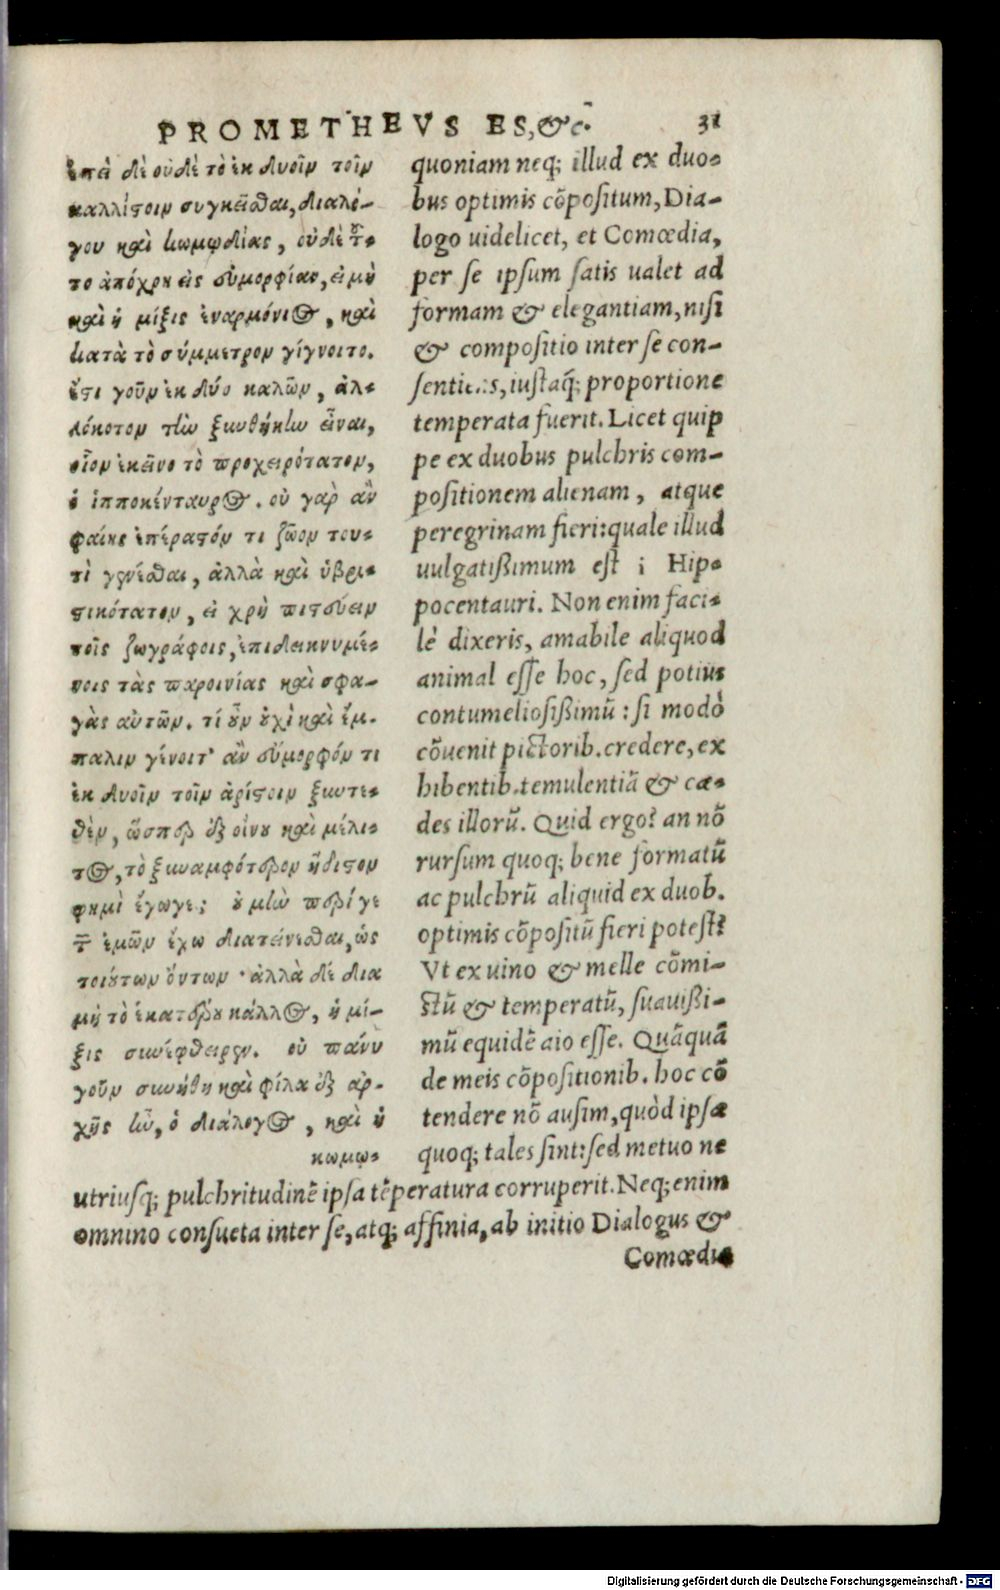 PROMETHEVS ES, &c. 31
ἐπεὶ δὲ οὐδὲ τὸ ἐκ δυοῖν τοῖν
καλλίστοιν συγκεῖσθαι, διαλό-
γου καὶ κωμῳδίας, οὐδὲ τοῦ-
το ἀπόχρη εἰς εὐμορφίαν, εἰ μὴ
καὶ ἡ μίξις ἐναρμόνιος, καὶ
κατὰ τὸ σύμμετρον γίγνοιτο.
ἔστι γοῦν ἐκ δύο καλῶν, ἀλ-
λόκοτον τὴν ξυνθήκην εἶναι,
οἷον ἐκεῖνο τὸ προχειρότατον,
ὁ ἱπποκένταυρος. οὐ γὰρ ἂν
φαίης ἐπέραστόν τι ζῶον του-
τὶ γενέσθαι, ἀλλὰ καὶ ὑβρι-
στικότατον, εἰ χρὴ πιστεύειν
τοῖς ζωγράφοις, ἐπιδεικνυμέ-
νοις τὰς παροινίας καὶ σφα-
γὰς αὐτῶν. τί οὖν οὐχὶ καὶ ἔμ-
παλιν γένοιτ᾽ ἂν εὔμορφόν τι
ἐκ δυοῖν τοῖν ἀρίστοιν ξυντε-
θὲν, ὥσπερ ἐξ οἴνου καὶ μέλι-
τος, τὸ ξυναμφότερον ἥδιστον
φημὶ ἔγωγε; οὐ μὴν περί γε
τῶν ἐμῶν ἔχω διατείνεσθαι, ὡς
τοιούτων ὄντων · ἀλλὰ δέδια
μὴ τὸ ἑκατέρου κάλλος, ἡ μί-
ξις συνέφθειρεν. οὐ πάνυ
γοῦν συνήθη καὶ φίλα ἐξ ἀρ-
χῆς ἦν, ὁ διάλογος, καὶ ἡ
κωμῳ-
quoniam neq; illud ex duo-
bus optimis cõpositum, Dia-
logo uidelicet, et Comœdia,
per se ipsum satis ualet ad
formam & elegantiam, nisi
& compositio inter se con-
iustaq́; proportione
temperata fuerit. Licet quip
pe ex duobus pulchris com-
positionem alienam, atque
peregrinam fieri: quale illud
uulgatißimum est i Hip-
pocentauri. Non enim faci-
lè dixeris, amabile aliquod
animal esse hoc, sed potius
contumeliosißimũ: si modò
cõuenit pictorib. credere, ex
hibentib. temulentiã & cæ-
des illorũ. Quid ergo? an nõ
rursum quoq; bene formatũ
ac pulchrũ aliquid ex duob.
optimis cõpositũ fieri potest?
Vt ex uino & melle cõmi-
stũ & temperatũ, suauißi-
mũ equidẽ aio esse. Quãquã
de meis cõpositionib. hoc cõ
tendere nõ ausim, quòd ipsæ
quoq; tales sint: sed metuo ne
utriusq; pulchritudinẽ ipsa tẽperatura corruperit. Neq; enim
omnino consueta inter se, atq; affinia, ab initio Dialogus &
Comœdia
Digitalisierung gefördert durch die Deutsche Forschungsgemeinschaft - DFG